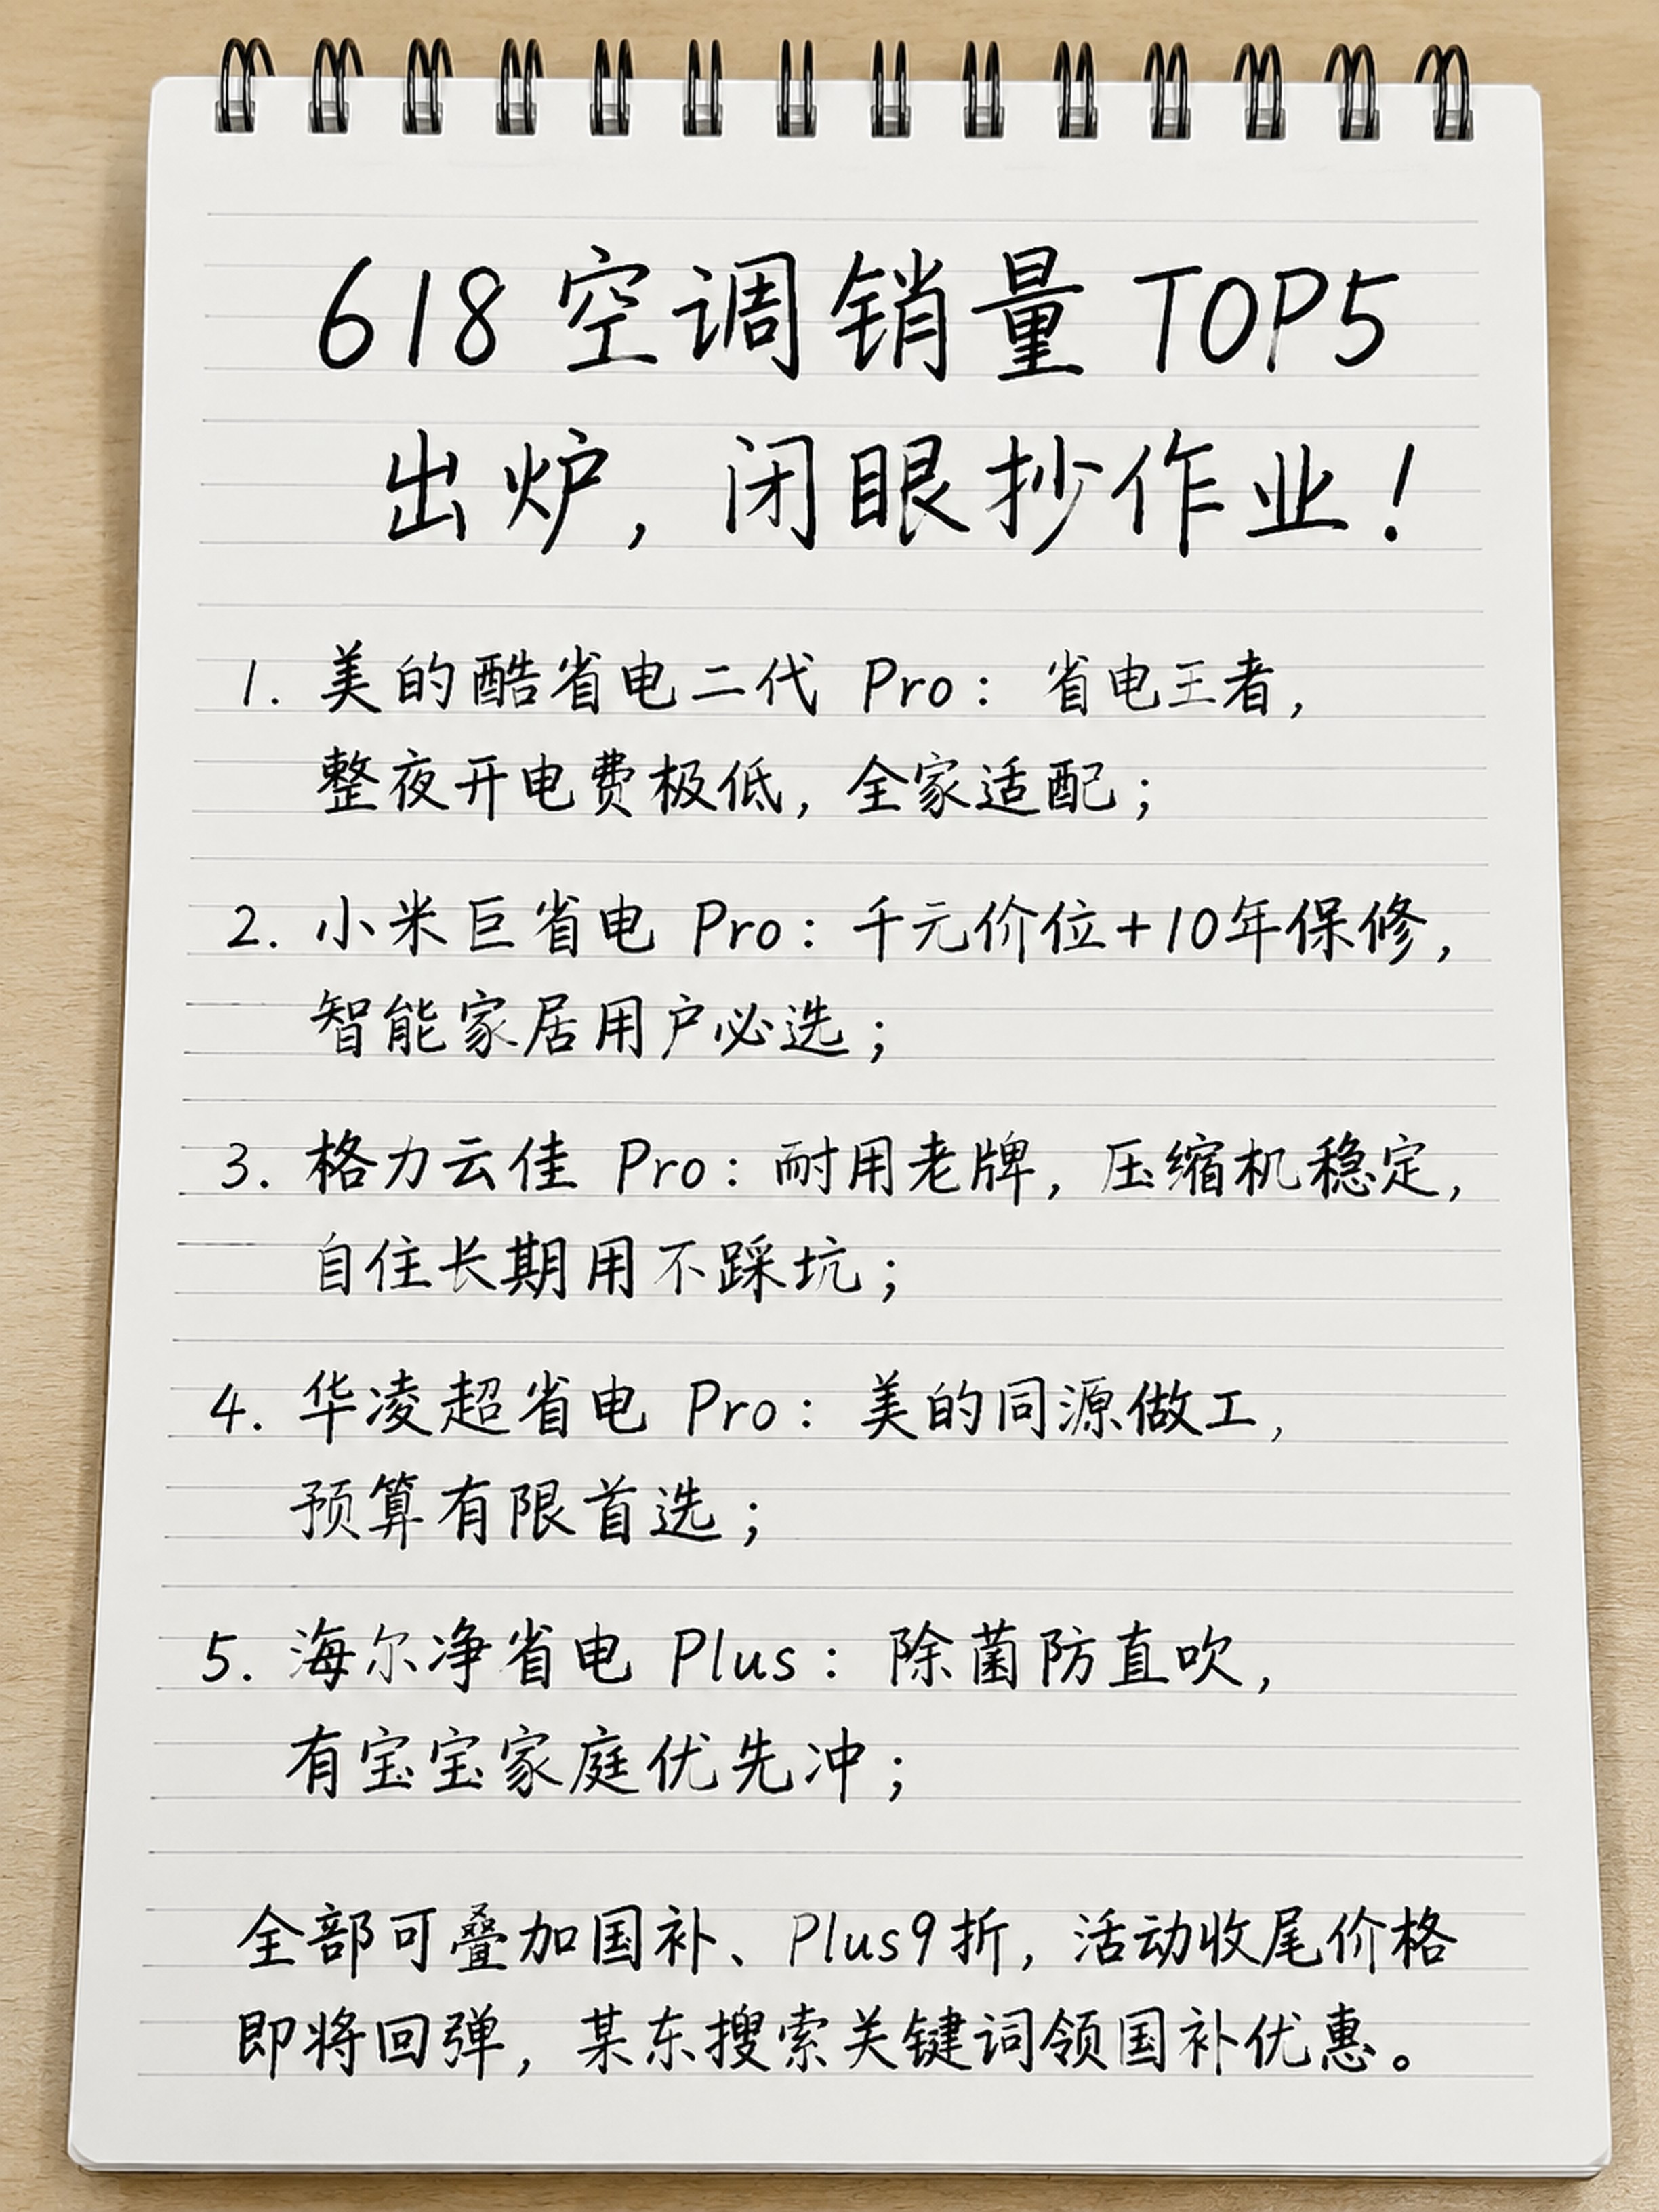 618 空调销量 TOP5
出炉，闭眼抄作业！
1. 美的酷省电二代 Pro：省电王者，
整夜开电费极低，全家适配；
2. 小米巨省电 Pro：千元价位+10年保修，
智能家居用户必选；
3. 格力云佳 Pro：耐用老牌，压缩机稳定，
自住长期用不踩坑；
4. 华凌超省电 Pro：美的同源做工，
预算有限首选；
5. 海尔净省电 Plus：除菌防直吹，
有宝宝家庭优先冲；
全部可叠加国补、Plus9折，活动收尾价格
即将回弹，某东搜索关键词领国补优惠。